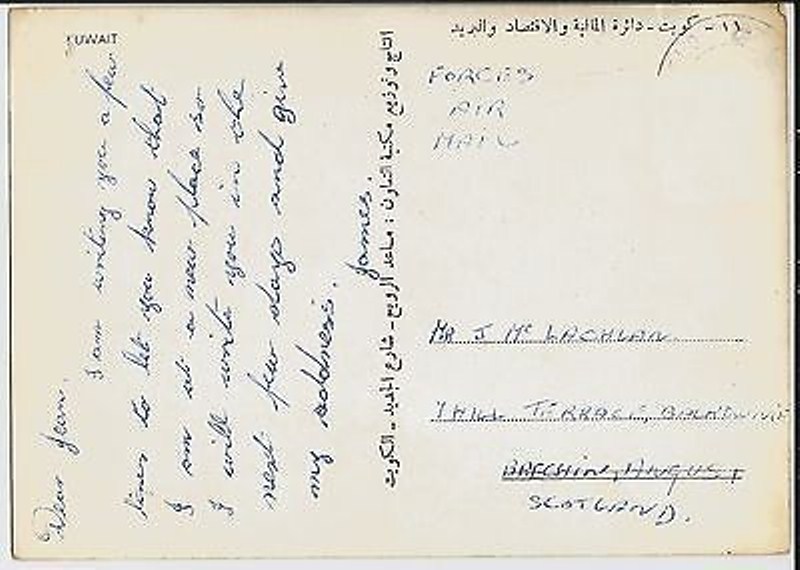 KUWAIT
١١ - كويت - دائرة المالية والاقتصاد والبريد
Dear Jean,
I am writing you a few
lines to let you know that
I am at a new place so
I will write you in the
next few days and give
my address.
James.
شارع الجديد - الكويت
FORCES
AIR
MAIL
MR J Mc LACHLAN
HILL TERRACE,
BRECHIN, ANGUS,
SCOTLAND.